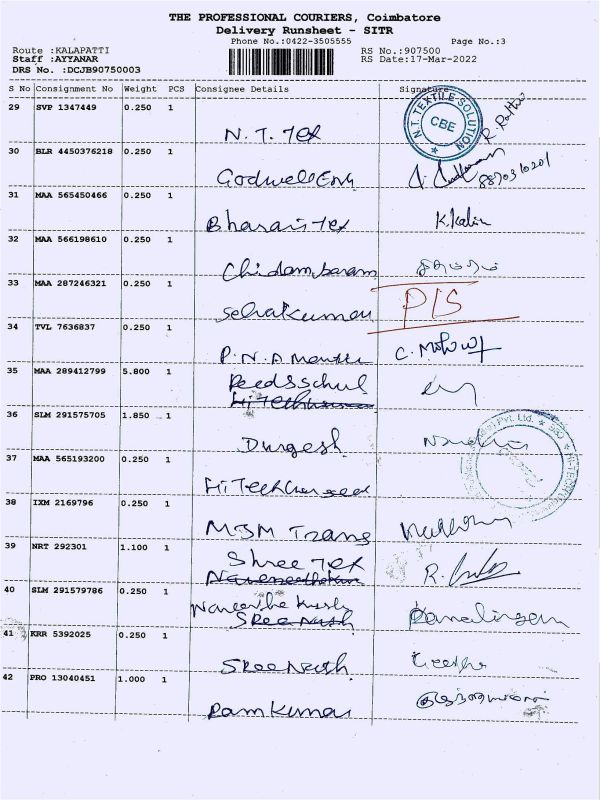 THE PROFESSIONAL COURIERS, Coimbatore
Delivery Runsheet - SITR
Phone No.:0422-3505555 Page No.:3
Route :KALAPATTI RS No.:907500
Staff :AYYANAR RS Date:17-Mar-2022
DRS No. :DCJB90750003
S No Consignment No Weight PCS Consignee Details Signature
29 SVP 1347449 0.250 1
N.T. Tex
N.T. TEXTILE SOLUTION
CBE
30 BLR 4450376218 0.250 1
Godwell Eng
8870310201
31 MAA 565450466 0.250 1
Tex
32 MAA 566198610 0.250 1
Chidambaram
33 MAA 287246321 0.250 1
Selvakumar
34 TVL 7636837 0.250 1
P.N.A
35 MAA 289412799 5.800 1
36 SLM 291575705 1.850 1
Durgesh
Pvt. Ltd.
37 MAA 565193200 0.250 1
38 IXM 2169796 0.250 1
MSM Trans
39 NRT 292301 1.100 1
Shree Tex
40 SLM 291579786 0.250 1
41 KRR 5392025 0.250 1
Sree Nath
Geetha
42 PRO 13040451 1.000 1
Ramkumar